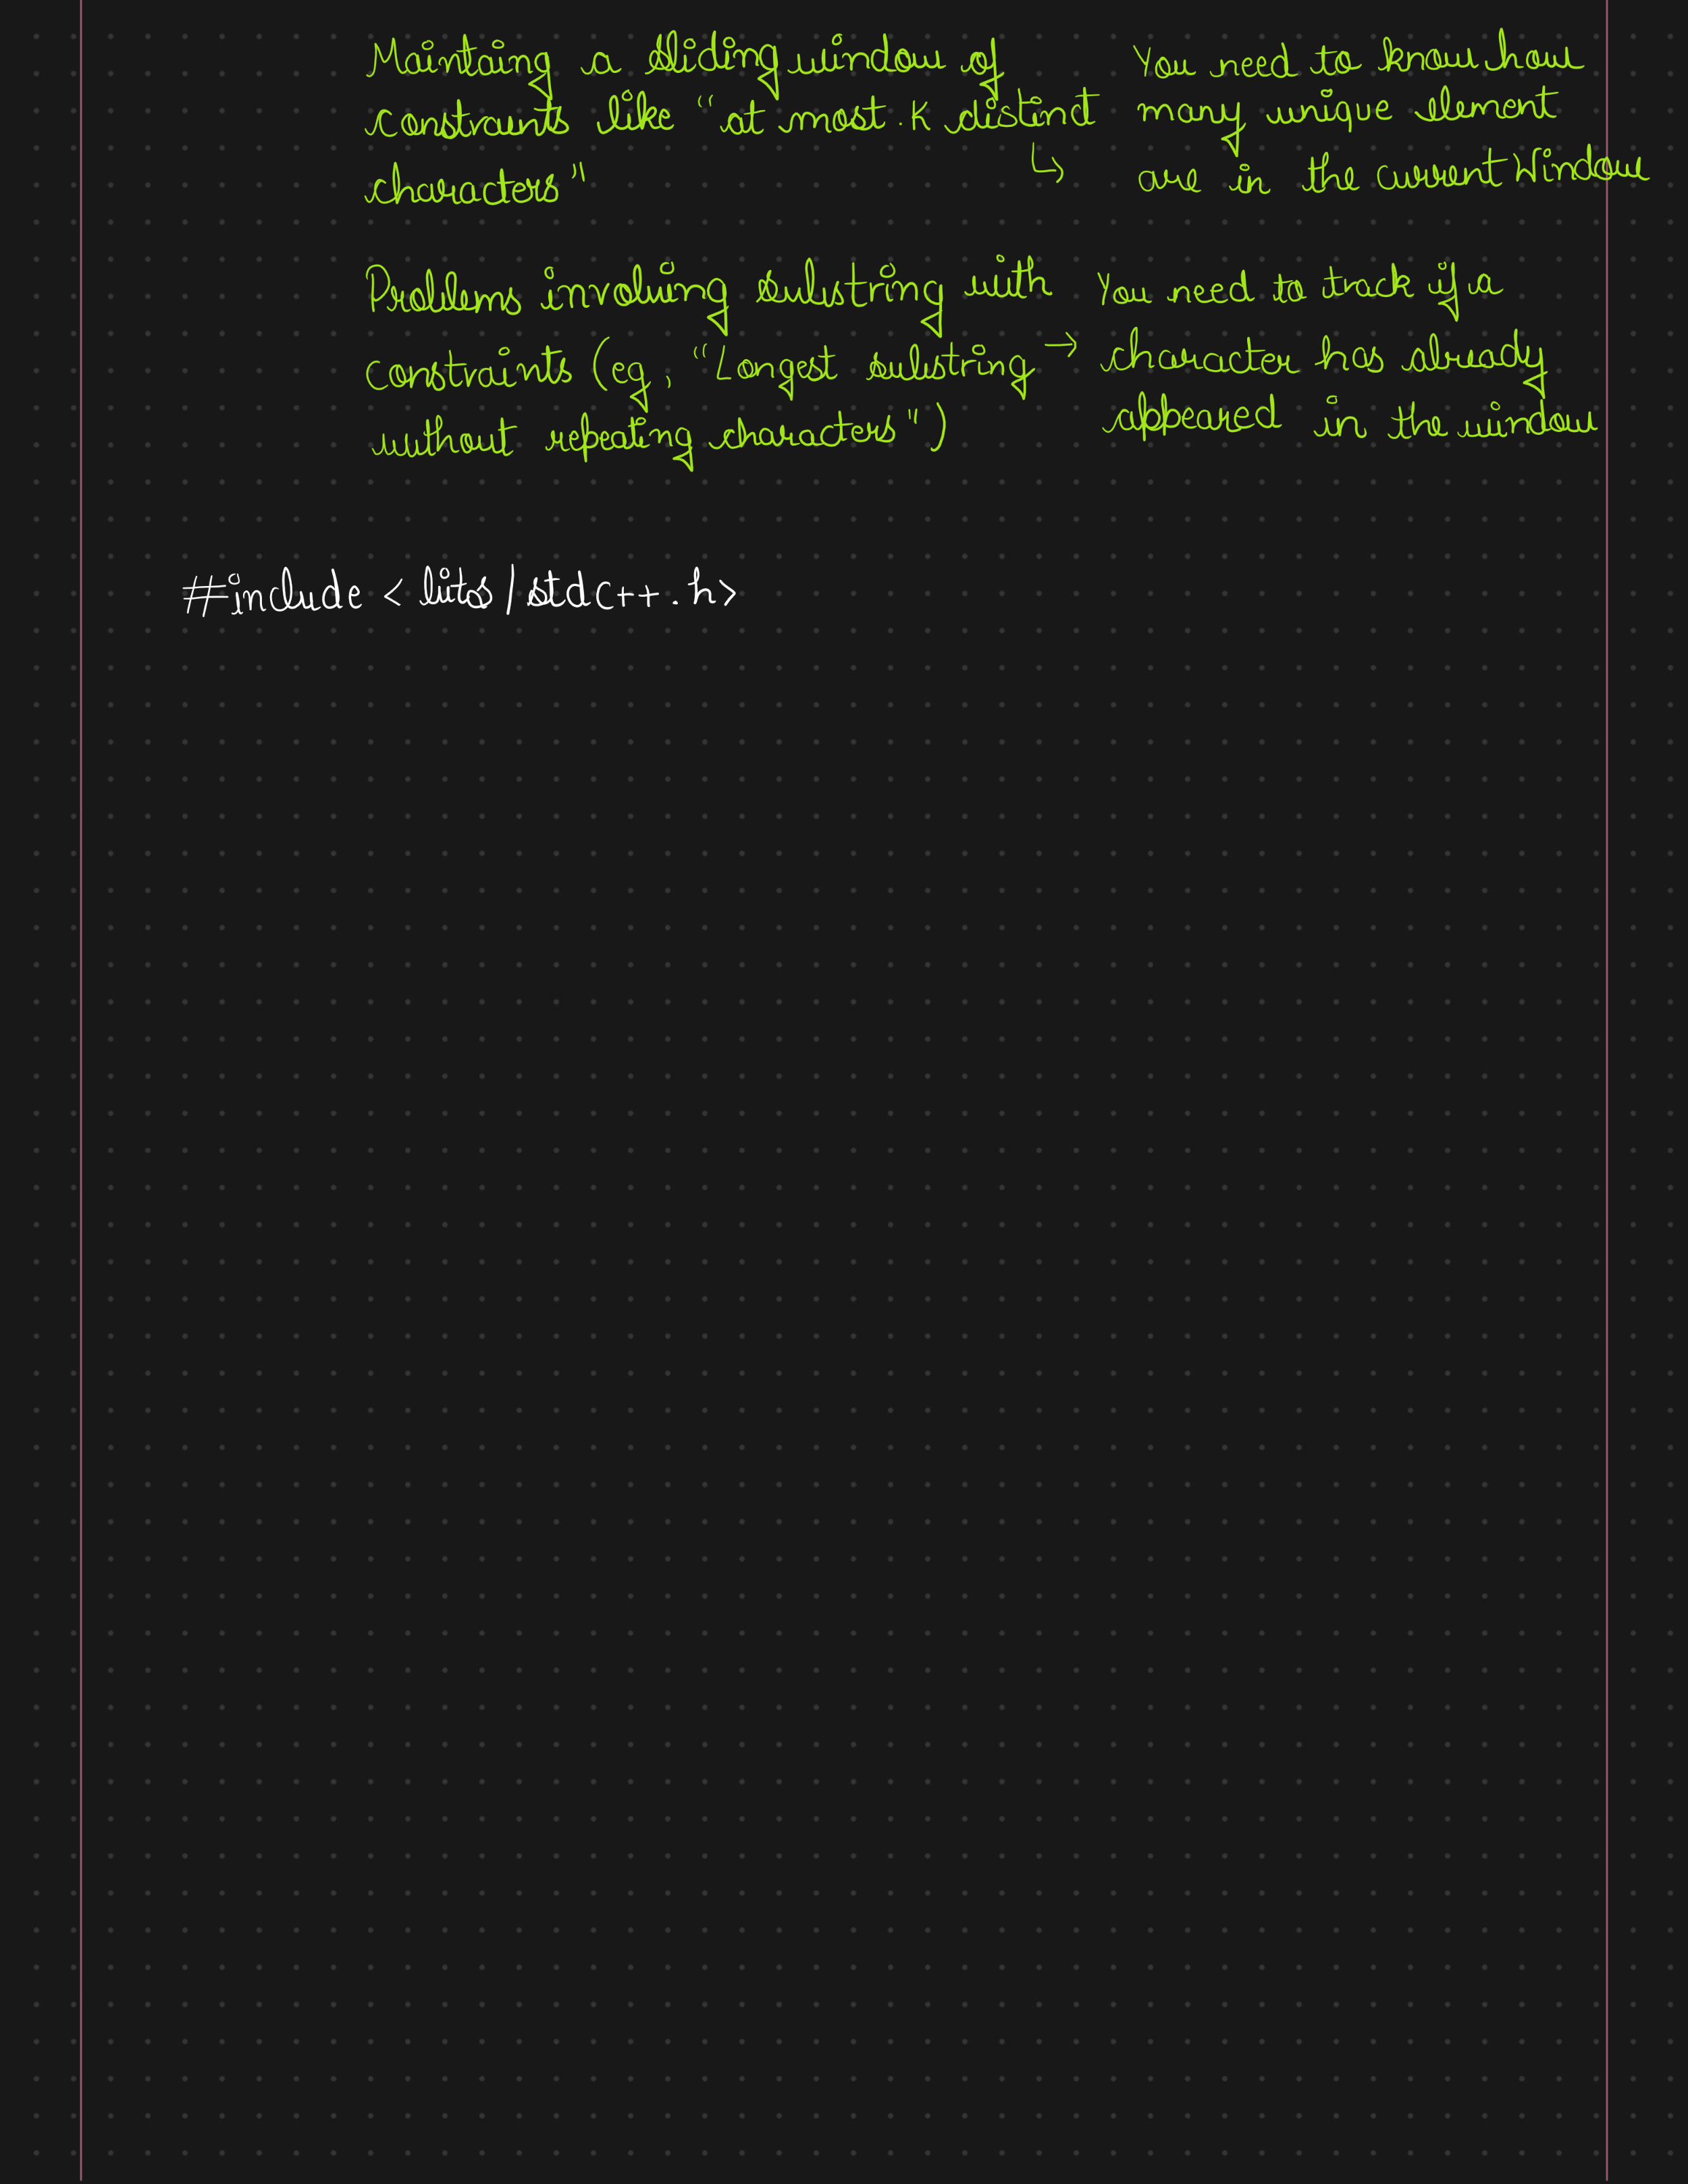 Maintaing a sliding window of
constraints like "at most K distinct
characters"
↳ You need to know how
many unique element
are in the current Window
Problems involving substring with
constraints (eg, "Longest substring
without repeating characters")
→ You need to track if a
character has already
appeared in the window
#include <bits/stdc++.h>